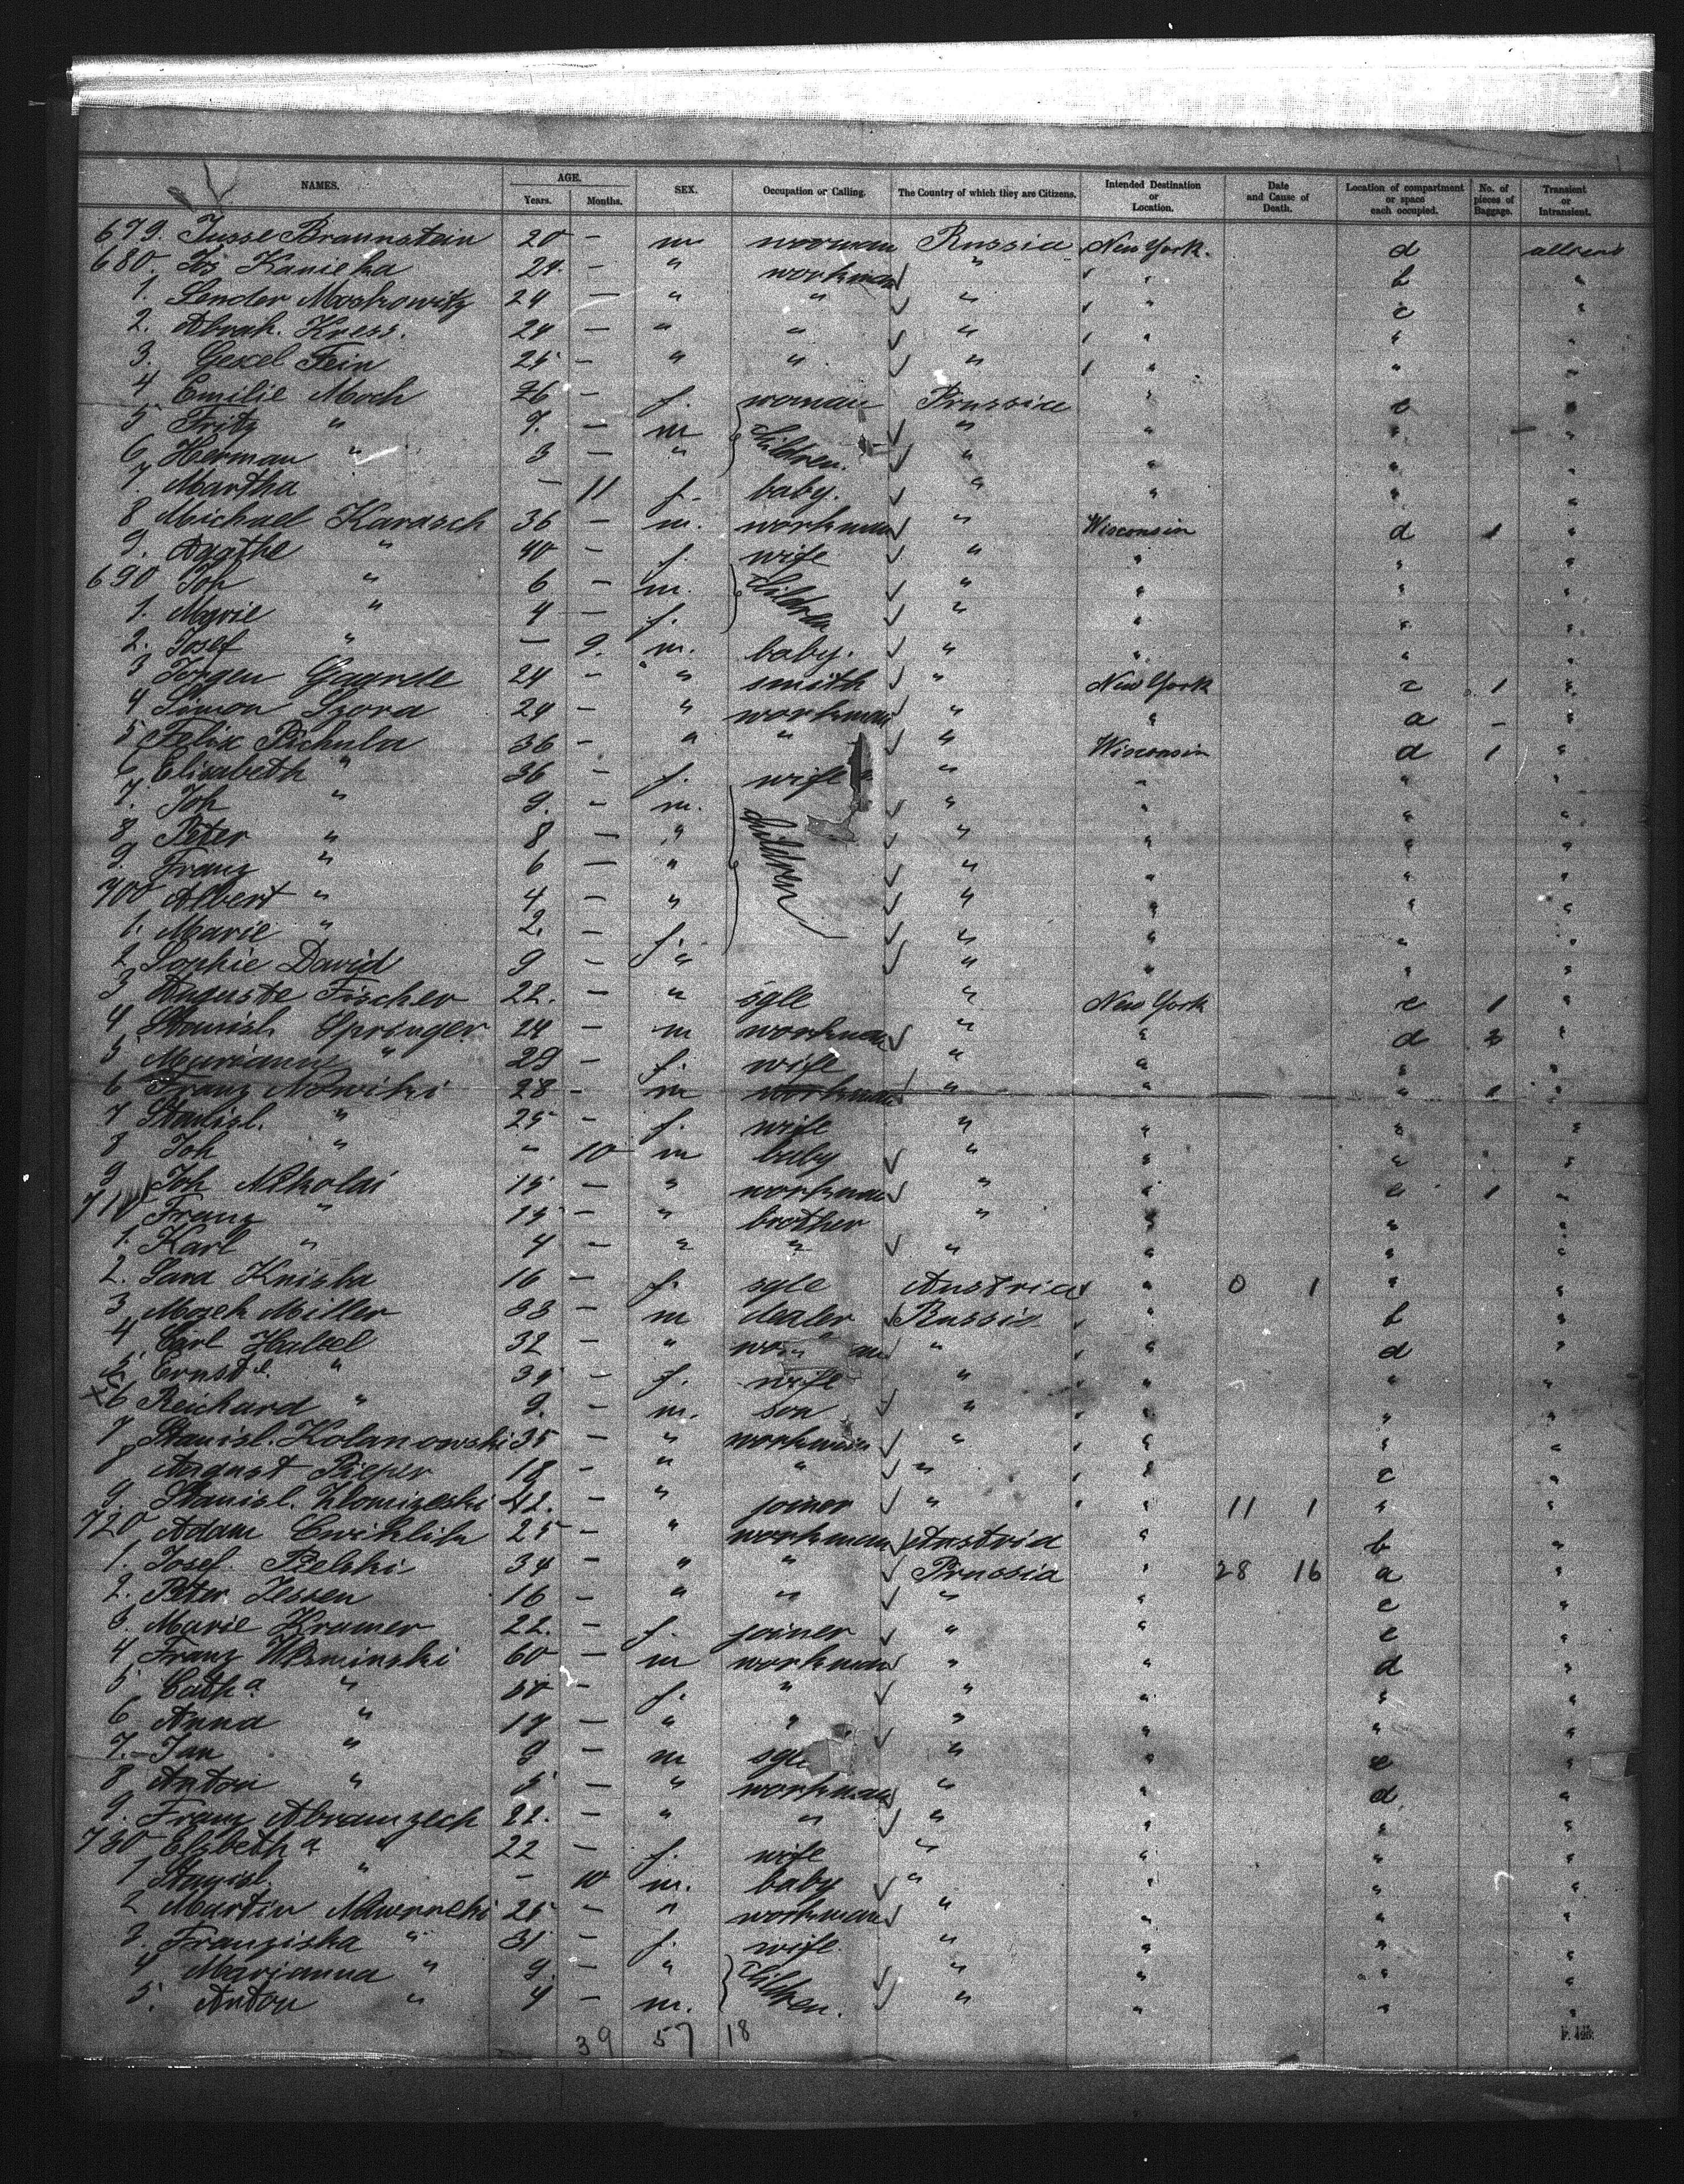 NAMES. AGE. Years. Months. SEX. Occupation or Calling. The Country of which they are Citizens. Intended Destination or Location. Date and Cause of Death. Location of compartment or space each occupied. No. of pieces of Baggage. Transient or Intransient.
679. Jusse Braunstein 20 - m workman Russia New York. d
680. Jos Kanieka 24 - " workman " " b "
1. Sender Moskowitz 24 - " " " " c "
2. Abrah. Kress. 24 - " " " " " "
3. Gexel Fein 25 - " " " " " "
4 Emilie Moch 26 - f. woman Prussia " c "
5 Fritz " 7. - m children. " " " "
6 Herman " 3 - " " " " "
7. Martha - 11 f. baby. " " " "
8 Michael Karasch 36 - m. workman " Wisconsin d 1 "
9. Agathe " 40 - f. wife " " " "
690 Joh " 6 - m. children " " " "
1. Marie " 4 - f. " " " "
2. Josef " - 9. m. baby. " " " "
3 Jorgen Gaarde 24 - " smith " New York c 1 "
4 Simon Szora 24 - " workman " " a - "
5 Felix Pichula 36 - " " " Wisconsin d 1 "
6 Elisabeth " 36 - f. wife " " " "
7. Joh " 9. - m. children " " " "
8 Peter " 8 - " " " " "
9. Franz " 6 - " " " " "
700 Albert " 4 - " " " " "
1. Marie " 2. - f. " " " "
2 Sophie David 9 - " " " " "
3 Auguste Fischer 22. - " sgle " New York c 1 "
4 Stanisl. Springer 24 - m workman " " d 3 "
5 Marianne " 29 - f. wife " " " "
6 Franz Nowiki 28 - m workman " " " 1 "
7 Stanisl. " 25 - f. wife " " " "
8 Joh " - 10 m baby " " " "
9 Joh Nikolai 15 - " workman " " " 1 "
710 Franz " 15 - " brother " " " "
1. Karl " 4 - " " " " " "
2. Sara Knisba 16 - f. sgle Austria " 0 1 " "
3. Mozek Miller 33 - m dealer Russia " b "
4 Carl Haltel 32 - " " " d "
5. Ernste. " 35 - f. wife " " " "
6 Reichard " 9. - m. son " " " "
7 Stanisl. Kolanowski 35 - " workman " " " "
8 August Pieper 18 - " " " " c "
9. Stanisl. 42. - " joiner " " 11 1 " "
720 Adam Cwiklik 25 - " workman Austria " b "
1. Josef Bielski 34 - " " Prussia " 28 16 a
2. Peter Jessen 16 - " " " " c "
3. Marie Kramer 22. - f. joiner " " c "
4 Franz 60 - m workman " " d "
5 Catha " - f. " " " " "
6 Anna " - " " " " " "
7. Jan " 9 - m sgle " " e "
8 Anton " 5 - " workman " " d "
9. Franz Abramzech 22. - " " " " " "
730 Elsbetha " 22 - f. wife " " " "
1 Stanisl. " - 10 m. baby " " " "
2 Martin 25 - " workman " " " "
3. Franziska " 31 - f. wife " " " "
4 Marianna " 9. - " children. " " " "
5. Anton " 4 - m. " " " "
39 57 18